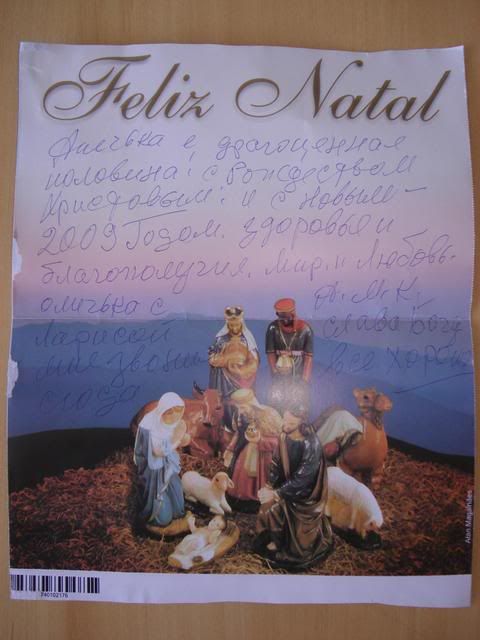 Feliz Natal
Анечька и драгоценная
половина! с Рождеством
Христовым! и с новым-
2009 Годом. здоровья и
благополучия. мир. и Любовь.
оличька с А. М. К.
Ларисой слава Богу
мне звонит все хорошо
сюда
Alan Magalhães
740102176